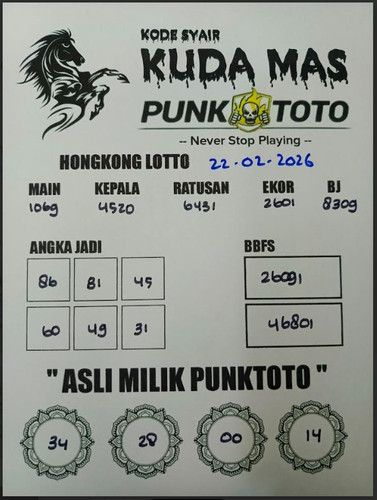 KODE SYAIR
KUDA MAS
PUNK TOTO
-- Never Stop Playing --
HONGKONG LOTTO 22-02-2026
MAIN KEPALA RATUSAN EKOR BJ
1069 4520 6431 2601 8309
ANGKA JADI BBFS
86 81 45 26091
60 49 31 46801
" ASLI MILIK PUNKTOTO "
34 28 00 14